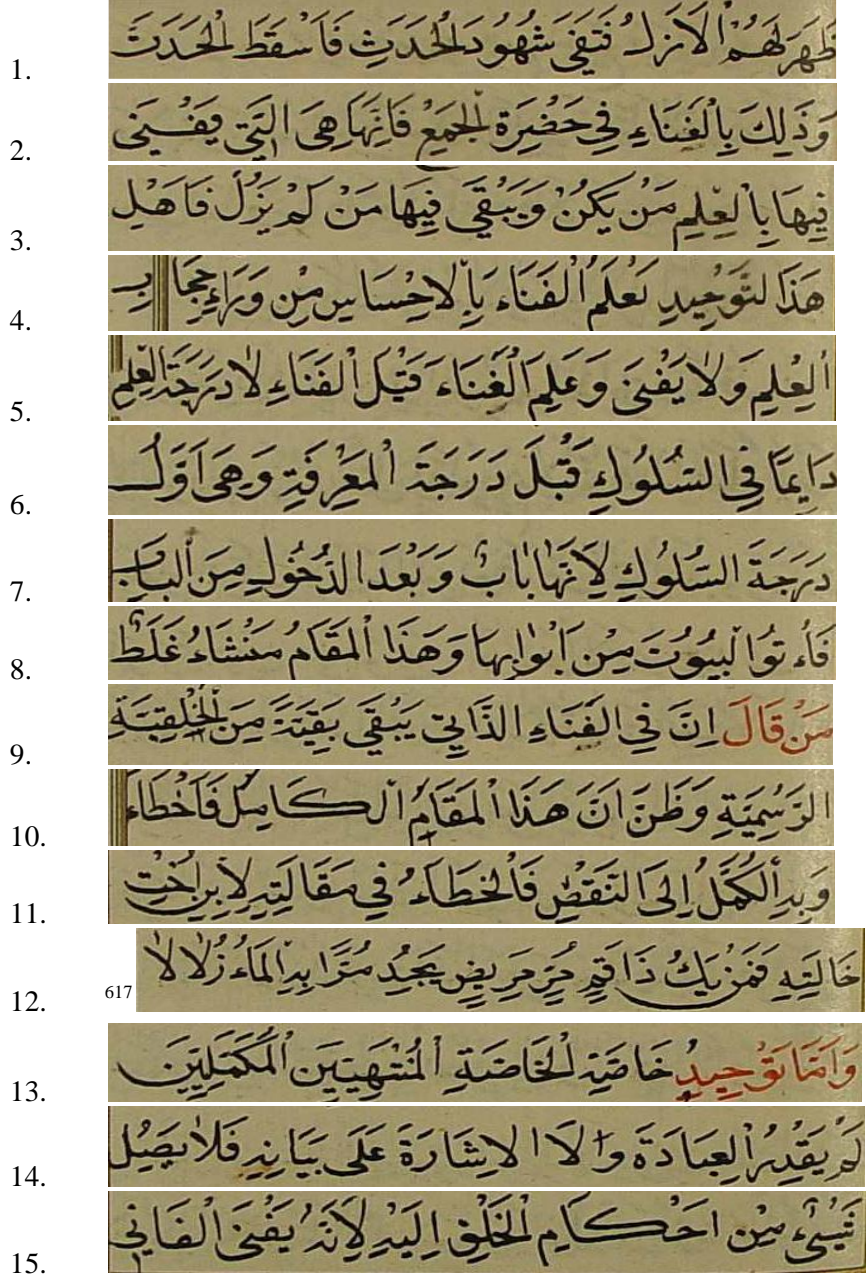 1. ظَهَرَ لَهُمْ الْاَزَلُ فَتَفَى شُهُودَ الْحَدَثِ فَاَسْقَطَ الْحَدَثَ
2. وَذَلِكَ بِالْفَنَاءِ فِي حَضْيِرَةِ الْجَمْعِ فَاِنَّهَا هِيَ الَّتِي يَفْنَى
3. فِيهَا بِالْعِلِمِ مَنْ يَكُنْ وَيَبْقَي فِيهَا مَنْ لَمْ يَزُلْ فَاَهْلِ
4. هَذَا لتَوْحِيدِ تَعْلَمُ الْفَنَاءَ بِالْاحْسَاسِ مِن وَرَاءِ حِجَابِ
5. الْعِلِمِ وَلَا يَفْنَى وَعَلِمَ الْفَنَاءَ قَبْلَ الْفَنَاءِ لَا دَرَجَةَ الْعِلِم
6. دَايِمًا فِي السُّلُوكِ قَبْلَ دَرَجَةِ الْمَعْرِفَةِ وَهِيَ اَوَّلُ
7. دَرَجَةَ السُّلُوكِ لِاَنَّهَا بَابٌ وَبَعْدَ الدُّخُولِ مِنَ الْبَابِ
8. فَأْتُوا لْبيُوُتَ مِنْ اَبْوَابِهَا وَهَذَا الْمَقَامُ مَنْشَاءُ غَلَطٌ
9. مَنْ قَالَ اِنَّ فِي الْفَنَاءِ الذَّاتِي يَبْقَي بَقِيَّةً مِنَ الْخِلْقِيَّةِ
10. الرَّسْمِيَّةِ وَظَنَّ اَنَّ هَذَا الْمَقَامُ الْكَامِلُ فَاَخْطَاءَ
11. وَبِهِ الْكُمَّلُ اِلَى النَّقْصِ فَالْخَطَاءُ فِي مَقَالَتِهِ لِاَبْنِ اُخْتِ
12. خَالَتِهِ فَمَنْ يَكُ ذَا فَمٍ مُرٍّ مَرِيضٍ يَجِدُ مُرًّا بِهِ الْمَاءُ زُلَالَا 617
13. وَاَمَّا تَوْحِيدِ خَاصَّةِ الْخَاصَّةِ الْمُنْتَهِيَين الْمُكَمَّلِيَن
14. لَمْ يَقْدِرُ الْعِبَادَةَ وَالَا الْاِشَارَةَ عَلَى بَيَانِهِ فَلَا يَصِيُل
15. شَيْءٌ مِنْ احْكَامِ الْخَلْقِ اِلَيْهِ لِاَنَّهُ يَفْنَى الْفَانِي